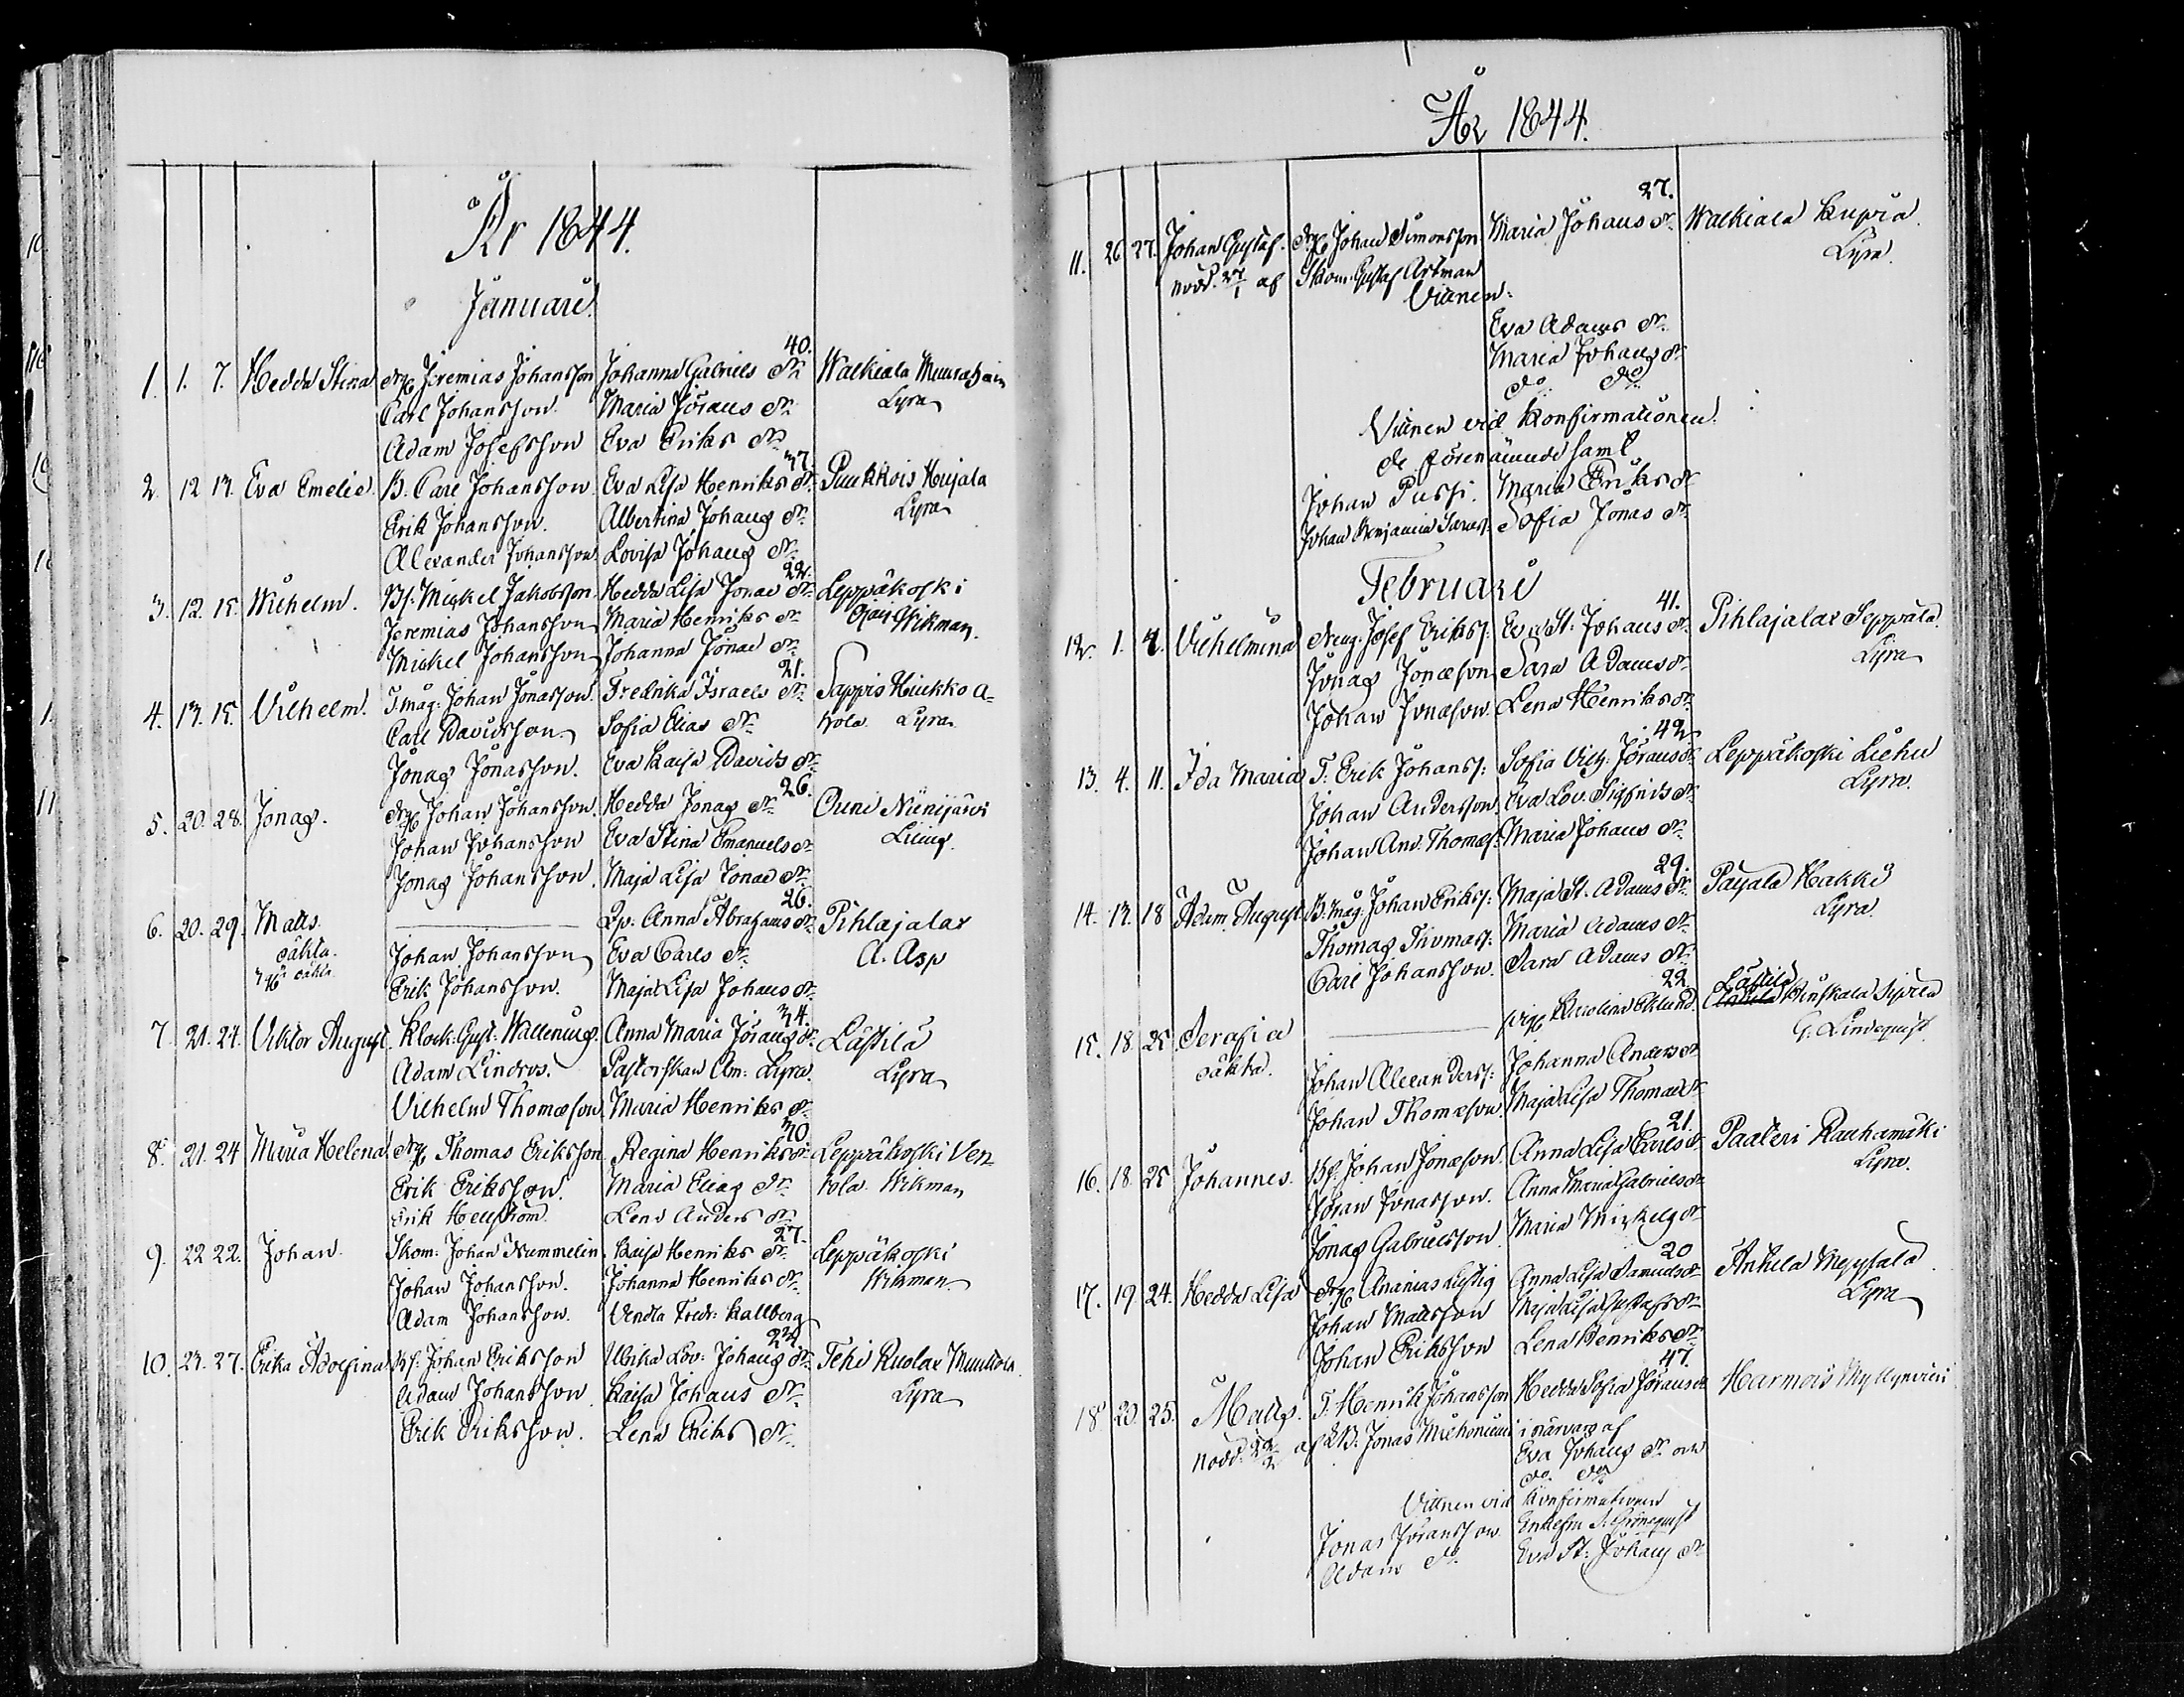 År 1844.
Januarii
40.
1. 1. 7. Hedda Stina drg Jeremias Johansson Johanna Gabriels dr. Walkiala
Carl Johansson. Maria Jörans dr. Lyra
Adam Josefsson Eva Eriks dr.
37.
2. 12 13. Eva Emelie. B. Carl Johansson Eva Lisa Henriks dr. Punkkois Heijala
Erik Johansson. Albertina Johans dr. Lyra
Alexander Johansson Lovisa Johans dr.
22.
3. 12. 15. Wilhelm. Bs. Mickel Jakobsson Hedda Lisa Jonae dr. Leppäkoski
Jeremias Johansson Maria Henriks dr. Wikman.
Mickel Johansson Johanna Jonae dr.
21.
4. 13. 15. Vilhelm. T. måg. Johan Jonasson. Fredrika Israels dr. Sappis Hinkko a-
Carl Davidsson. Sofia Elias dr. Lyra
Jonas Jonasson. Eva Kaisa Davids dr.
26.
5. 20. 28. Jonas. drg Johan Johansson. Hedda Jonas dr. Niinijärvi
Johan Johansson Eva Stina Emanuels dr. Liling.
Jonas Johansson. Maja Lisa Jonae dr.
26.
6. 20. 29. Matts. Qp. Anna Abrahams dr. Pihlajalax
oäkta. Johan Johansson Eva Carls dr. A. Asp
Erik Johansson. Maja Lisa Johans dr.
34.
7. 21. 24. Viktor August. Klock: Gust: Wallenius. Anna Maria Jörans dr. Lästilä
Adam Lindros. Pastorskan Am: Lyra. Lyra
Vilhelm Thomæson Maria Henriks dr.
30
8. 21. 24 Maria Helena drg Thomas Eriksson. Regina Henriks dr. Leppäkoski Ven-
Erik Eriksson. Maria Elias dr. tola. Wikman
Erik Hellström. Lena Anders dr.
27.
9. 22 22. Johan. Skom: Johan Nummelin. Kaisa Henriks dr. Leppäkoski
Johan Johansson. Johanna Henriks dr. Wikman
Adam Johansson. Vendla Fredr: Kallberg
22.
10. 23. 27. Erika Adolfina Bs: Johan Eriksson Ulrika Lov: Johans dr. Tehi Ruolax
Adam Johansson Kaisa Johans dr. Lyra
Erik Eriksson. Lena Eriks dr.
År 1844.
27.
11. 26 27. Johan Gustaf. drg Johan Simonsson Maria Johans dr. Walkiala Kupia
nödd. 27/1 af Skom. Gustaf Artman Lyra.
Vittnen:
Eva Adams dr.
Maria Johans dr
do. do.
Vittnen vid Konfirmationen
de förenämnde samt
Johan Pussi. Maria Eriks dr
Johan Benjamin Sofia Jonas dr.
Februari
41.
12. 1. 4. Vilhelmina dreng. Josef Erikss: Eva St: Johans dr. Pihlajalax Seppälä.
Jonas Jonæson Sara Adams dr. Lyra
Johan Jonæson. Lena Henriks dr.
42
13. 4. 11. Ida Maria T: Erik Johanss: Sofia Vilh: Jörans dr Leppäkoski Liehu
Johan Andersson Eva Lov. Sigfrids dr. Lyra.
Johan And. Thomæs. Maria Johans dr.
29.
14. 13. 18 Adam August B. måg. Johan Erikss: Maja St. Adams dr. Pajala Hakki
Thomas Thomass: Maria Adams dr. Lyra.
Carl Johansson. Sara Adams dr.
22
15. 18. 25 Serafia pig Karolina Eklund. Lästilä
oäkta. Johan Alexanderss: Johanna Anders dr G. Lindequist
Johan Thomæson. Maja Lisa Thomæ dr
21.
16. 18. 25 Johannes. Bs. Johan Jonæson. Anna Lisa Carls dr. Paateri Rauhamäki
Jöran Jonasson. Anna Maria Gabriels dr Lyra.
Jonas Gabrielsson Maria Mickels dr.
20
17. 19. 24. Hedda Lisa drg Ananias Lustig Anna Lisa Samuels dr Ankela
Johan Mattsson Maja Lisa Gustafs dr Lyra
Johan Eriksson Lena Henriks dr
47.
18. 20. 25. Matts. T: Henrik Johansson Hedda Sofia Jörans dr Harmois Myllynvieri
nödd. af Jonas i närvaro af
Eva Johans dr och
do. do.
Vittnen vid Konfirmationen
Jonas Jöransson
Adam do. Eva St: Johans dr